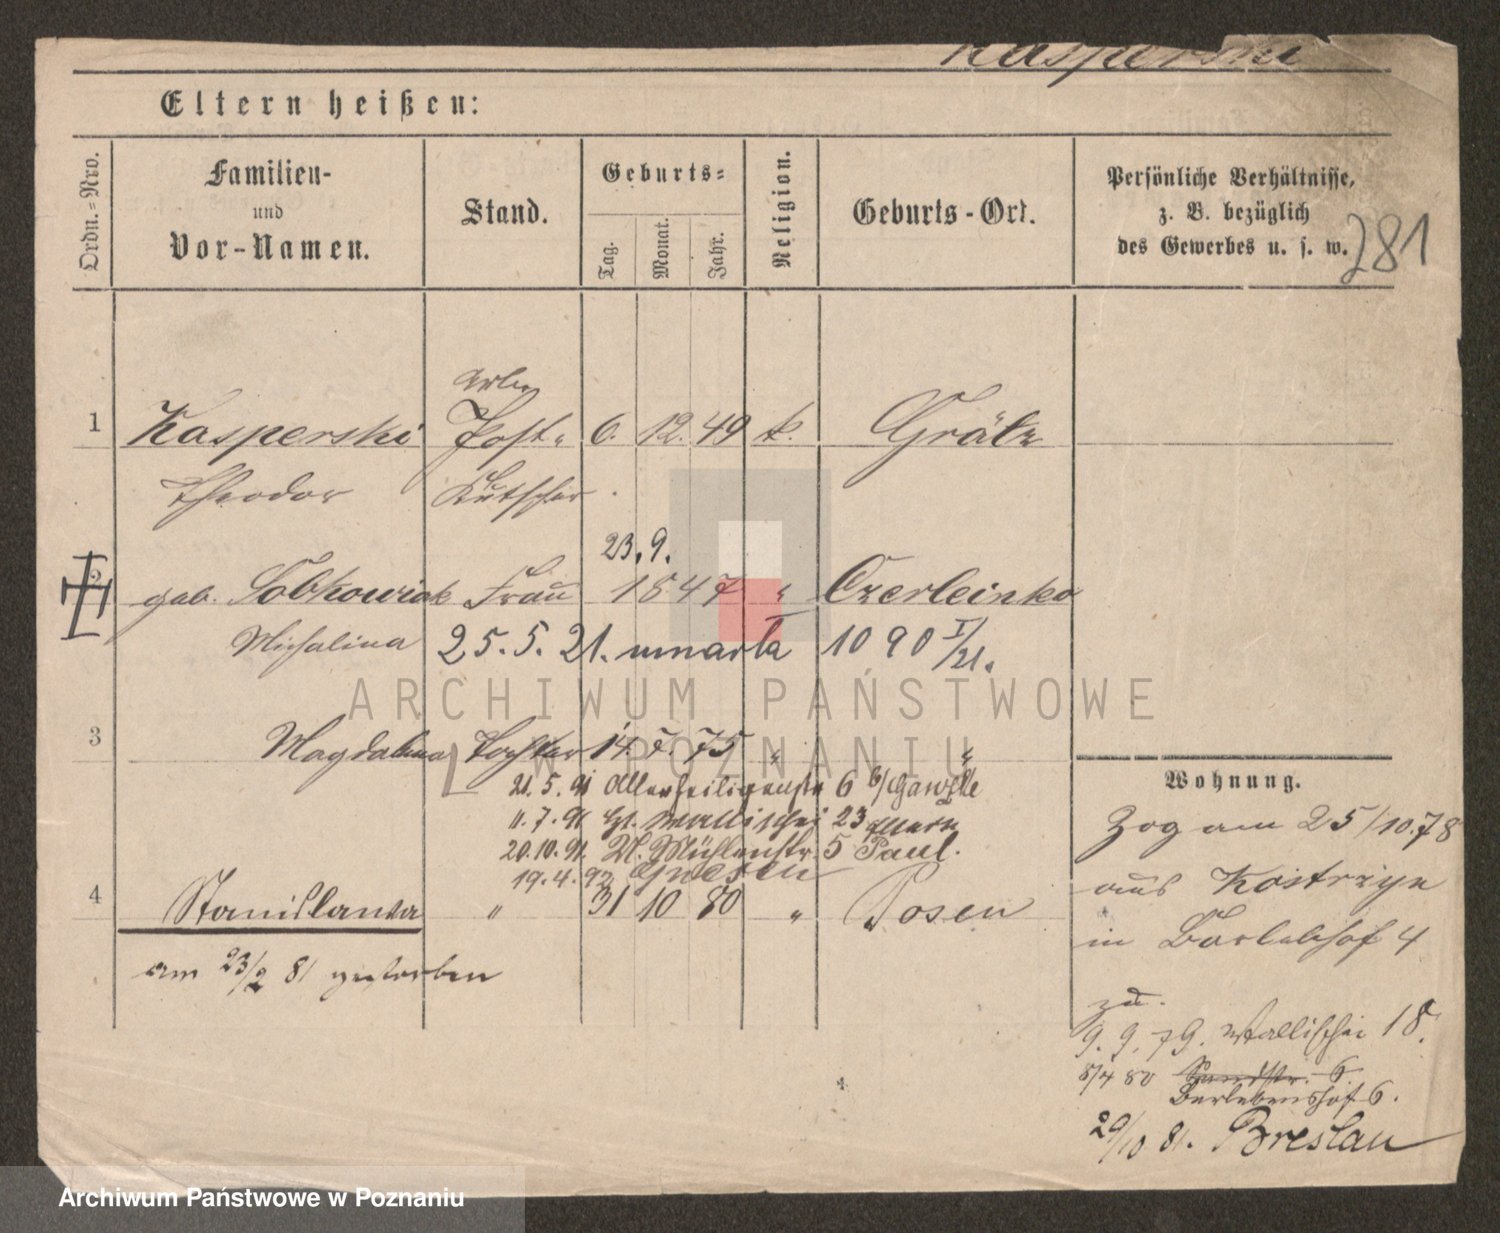 Kasperski
Eltern heißen:
Ordn.=Nro.
Familien-
und
Vor-Namen.
Stand.
Geburts=
Tag.
Monat.
Jahr.
Religion.
Geburts-Ort.
Persönliche Verhältnisse,
z. B. bezüglich
des Gewerbes u. s. w.
281
1 Kasperski Post- 6. 12. 49 k. Grätz
Theodor Kutscher
23. 9.
2 geb. Sobkowiak Frau 1847 " Czerleinko
Michalina 25. 5. 21. umarła 1090 I/21.
3 Magdalena Tochter 14. 5. 75 " "
21. 5. 91 Allerheiligenstr 6 b/
11. 7. 91 Wallischei 23 Eltern
20.10.91. Kl. Mühlenstr. 5 Paul.
19. 4. 92 Gnesen
4 Stanislawa " 31 10 80 " Posen
am 23/2 81 gestorben
Wohnung.
Zog am 25/10.78
aus Kostrzyn
in Berlebshof 4
zu.
9. 9. 79. Wallischei 18.
8/4 80 Sandstr. 6.
Berlebenshof 6.
29/10 81. Breslau
ARCHIWUM PAŃSTWOWE
W POZNANIU
Archiwum Państwowe w Poznaniu